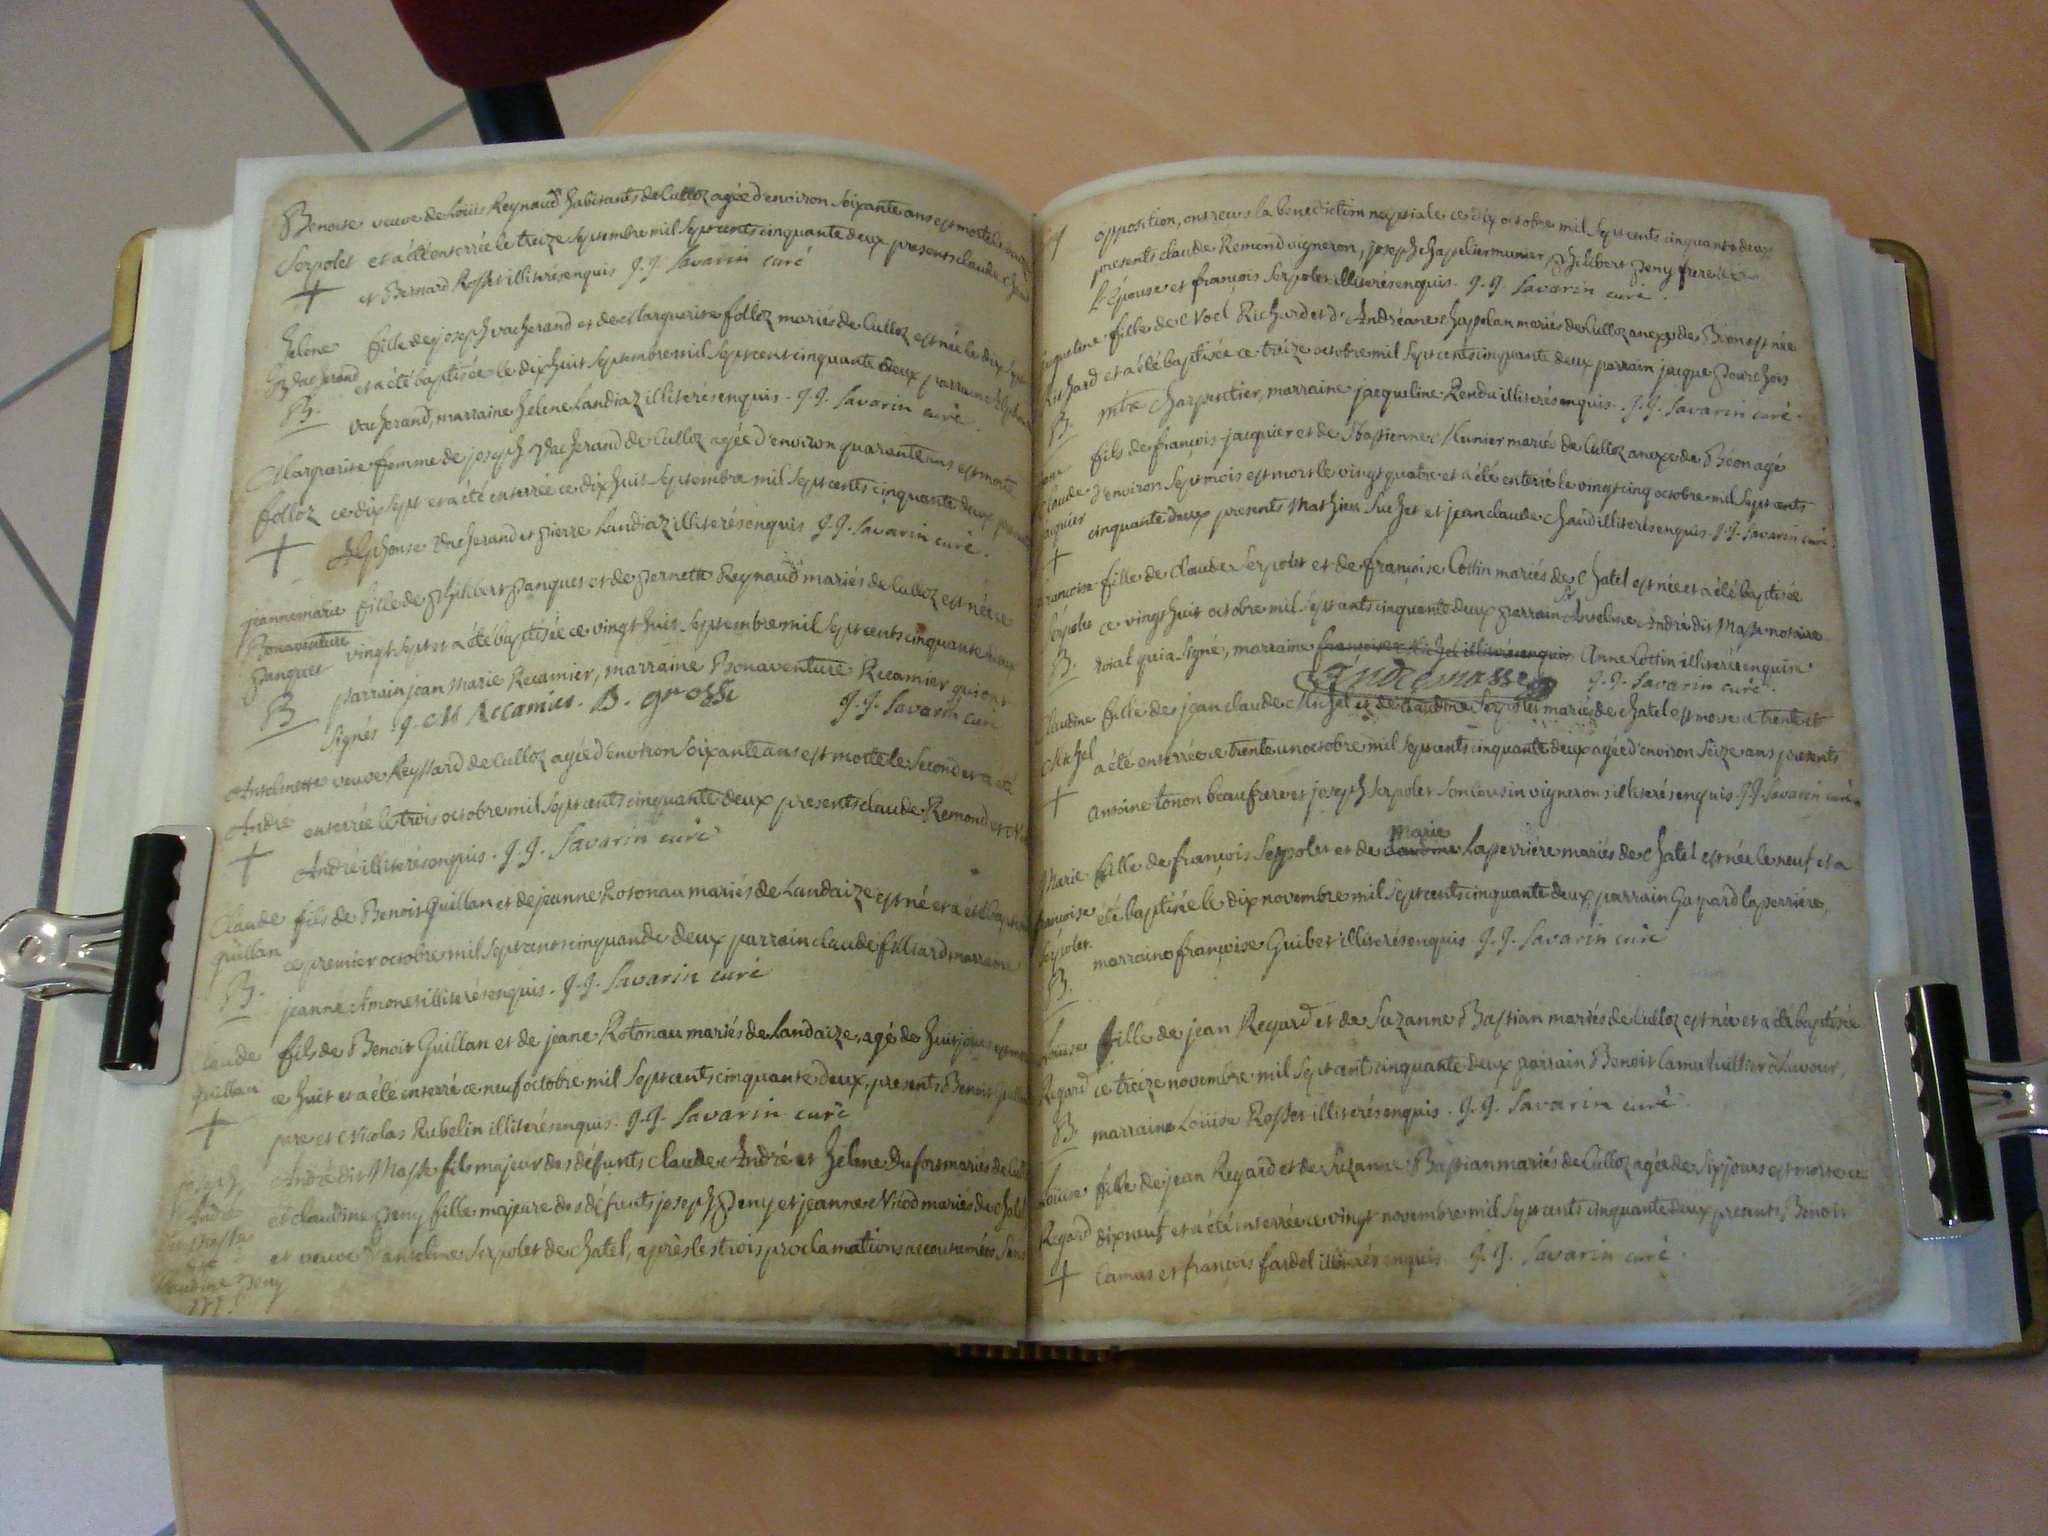 Benoite veuve de Loüis Reynaud habitants de Culloz agée d'environ soixante ans est morte le
Serpolet et a été enterrée le treize septembre mil sept cents cinquante deux presents claude
+ et Bernard Rosset illiterés enquis J. J. Savarin curé
helene fille de joseph vacherand et de Marguerite folloz mariés de Culloz est née le dix sept
vacherand et a été baptisée le dix huit septembre mil sept cent cinquante deux parrain Alphonse
B. vacherand, marraine helene Landiaz illiterés enquis. J. J. Savarin curé.
Marguerite femme de joseph Vacherand de Culloz agée d'environ quarante ans est morte
folloz ce dix sept et a été enterrée ce dix huit septembre mil sept cents cinquante deux presents
+ Alphonse vacherand et pierre Landiaz illiterés enquis J. J. Savarin curé.
jeanne marie fille de philibert panques et de pernette Reynaud mariés de Culloz est née ce
Bonaventure vingt sept et a été baptisée ce vingt huit septembre mil sept cents cinquante deux
panques parrain jean Marie Recamier, marraine Bonaventure Recamier qui ont
B signés J. M Reccamier. B. grosse J. J. Savarin curé
Antelmette veuve Reyssard de Culloz agée d'environ soixante ans est morte le second et a été
André enterrée le trois octobre mil sept cents cinquante deux presents claude Remond et
+ André illiterés enquis. J. J. Savarin curé
Claude fils de Benoit Guillan et de jeanne Rotonau mariés de Landaize est né et a été baptisé
guillan ce premier octobre mil sept cents cinquande deux parrain claude filliard marraine
B. jeanne Amonet illiterés enquis. J. J. Savarin curé
Claude fils de Benoit Guillan et de jeane Rotonau mariés de Landaize, agé de huit jours est mort
guillan ce huit et a été enterré ce neuf octobre mil sept cents cinquante deux, presents Benoit Guillan
+ pere et Nicolas Rubelin illiterés enquis. J. J. Savarin curé
joseph André dit Masse fils majeur des défunts claude André et helene Dufour mariés de
André et claudine peny fille majeure des défunts joseph peny et jeanne Nicod mariés de chatel
dit Masse et veuve d'antelme Serpolet de chatel, après les trois proclamations accoutumées sans
et
claudine peny
M.
opposition, ont reçus la benediction nuptiale ce dix octobre mil sept cents cinquante deux
presents claude Remond vigneron, joseph chapelier munier, philibert peny frere de
l'épouse et françois Serpolet illiterés enquis. J. J. Savarin curé.
jaqueline fille de Noel Richard et d'Andréane chapelan mariés de Culloz anexe de Béon est née
Richard et a été baptisée ce treize octobre mil sept cents cinquante deux parrain jacque pourchois
B. mtre charpentier, marraine jacqueline Rendu illiterés enquis. J. J. Savarin curé.
jean fils de françois jacquier et de Bastienne Munier mariés de Culloz anexe de Béon agé
claude d'environ sept mois est mort le vingt quatre et a été enterré le vingt cinq octobre mil sept cents
jacquier cinquante deux presents Mathieu Suchet et jean claude chaud illiterés enquis. J. J. Savarin curé.
+
françoise fille de claude Serpolet et de françoise Cottin mariés de Chatel est née et a été baptisée
Serpolet ce vingt huit octobre mil sept cents cinquante deux parrain Sr Antelme André dit Masse notaire
B. roial qui a signé, marraine françoise Michel illiterés enquis Anne Cottin illiterée enquise.
Andremasse J. J. Savarin curé.
Claudine fille de jean claude Michel et de claudine Serpolet mariés de chatel est morte le trente et
Michel a été enterrée ce trente un octobre mil sept cents cinquante deux agée d'environ seize ans presents
+ antoine tonon beaufrere et joseph Serpolet son cousin vignerons illiterés enquis. J. J. Savarin curé.
marie
Marie fille de françois Serpolet et de claudine Laperriere mariés de Chatel est née le neuf et a
françoise été baptisée le dix novembre mil sept cents cinquante deux, parrain Gaspard laperriére,
Serpolet. marraine françoise Guibet illiterés enquis. J. J. Savarin curé
B.
Loüise fille de jean Regard et de Suzanne Bastian mariés de Culloz est née et a été baptisée
Regard ce treize novembre mil sept cent cinquante deux parrain Benoit Camus tuillier à Lavour,
B. marraine Loüise Rosset illiterés enquis. J. J. Savarin curé.
Loüise fille de jean Regard et de Suzanne Bastian mariés de Culloz agée de six jours est morte ce
Regard dix neuf et a été enterrée ce vingt novembre mil sept cents cinquante deux presents Benoit
+ Camus et françois fardel illiterés enquis J. J. Savarin curé.